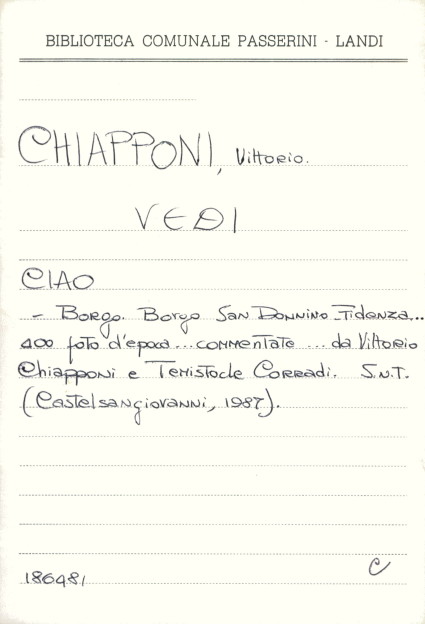 BIBLIOTECA COMUNALE PASSERINI - LANDI
CHIAPPONI, Vittorio.
VEDI
CIAO
- Borgo. Borgo San Donnino Fidenza...
400 foto d'epoca... commentate ... da Vittorio
Chiapponi e Temistocle Corradi. S.n.t.
(Castelsangiovanni, 1987).
C
186481